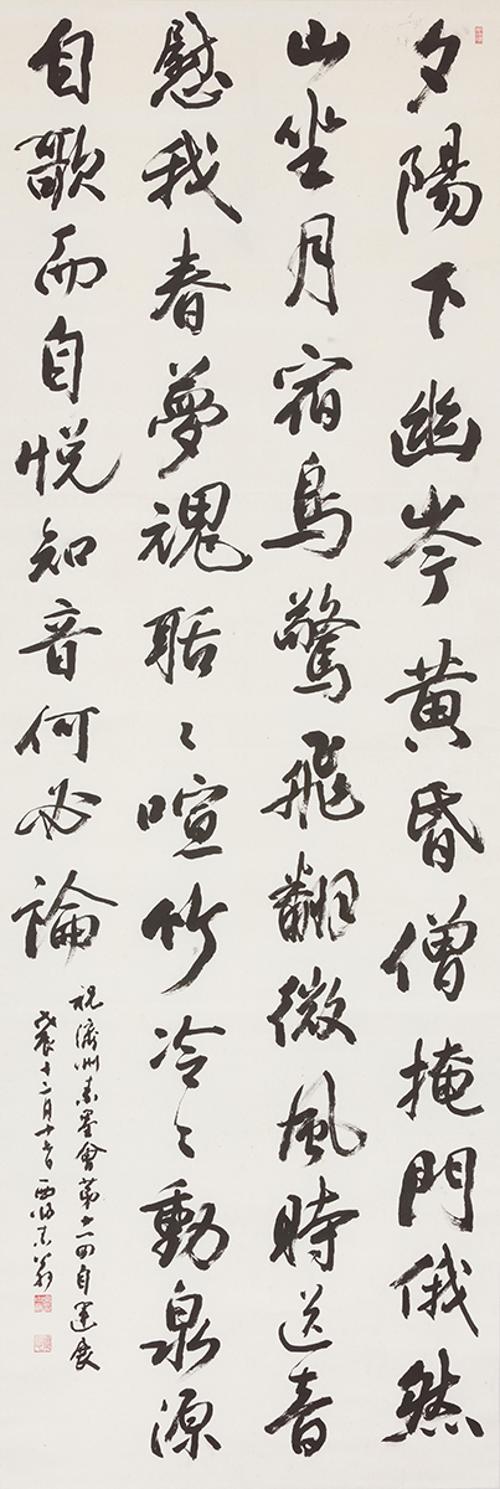 夕陽下幽岑黄昏僧掩門俄然
山坐月宿鳥驚飛翻微風時送音
慰我春夢魂聒々喧竹冷々動泉源
自歌而自悦知音何必論
祝濟州素墨會第回自運展
戊辰十二月十日